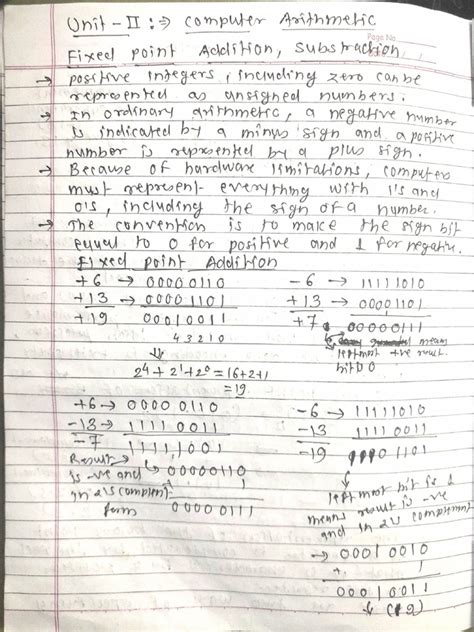 Unit - II :⇒ Computer Arithmetic
Page No
Fixed point Addition, Substraction
→ positive integers, including zero can be
represented as unsigned numbers.
→ In ordinary arithmetic, a negative number
is indicated by a minus sign and a positive
number is represented by a plus sign.
→ Because of hardware limitations, computers
must represent everything with 1's and
0's, including the sign of a number.
→ The convention is to make the sign bit
equal to 0 for positive and 1 for negative.
Fixed point Addition
+6 → 00000110
+13 → 00001101
+19 00010011
4 3 2 1 0
⇓
2⁴ + 2¹ + 2⁰ = 16+2+1
= 19
-6 → 11111010
+13 → 00001101
+7 00000111
mean
leftmost +ve result
bit 0
+6 → 00000110
-13 → 11110011
-7 11111001
Result → 00000110
is -ve and
in 2's complement
form 00000111
-6 → 11111010
-13 11110011
-19 1101
leftmost bit is 1
means result is -ve
and in 2's complement
→ 00010010
+ 1
00010011